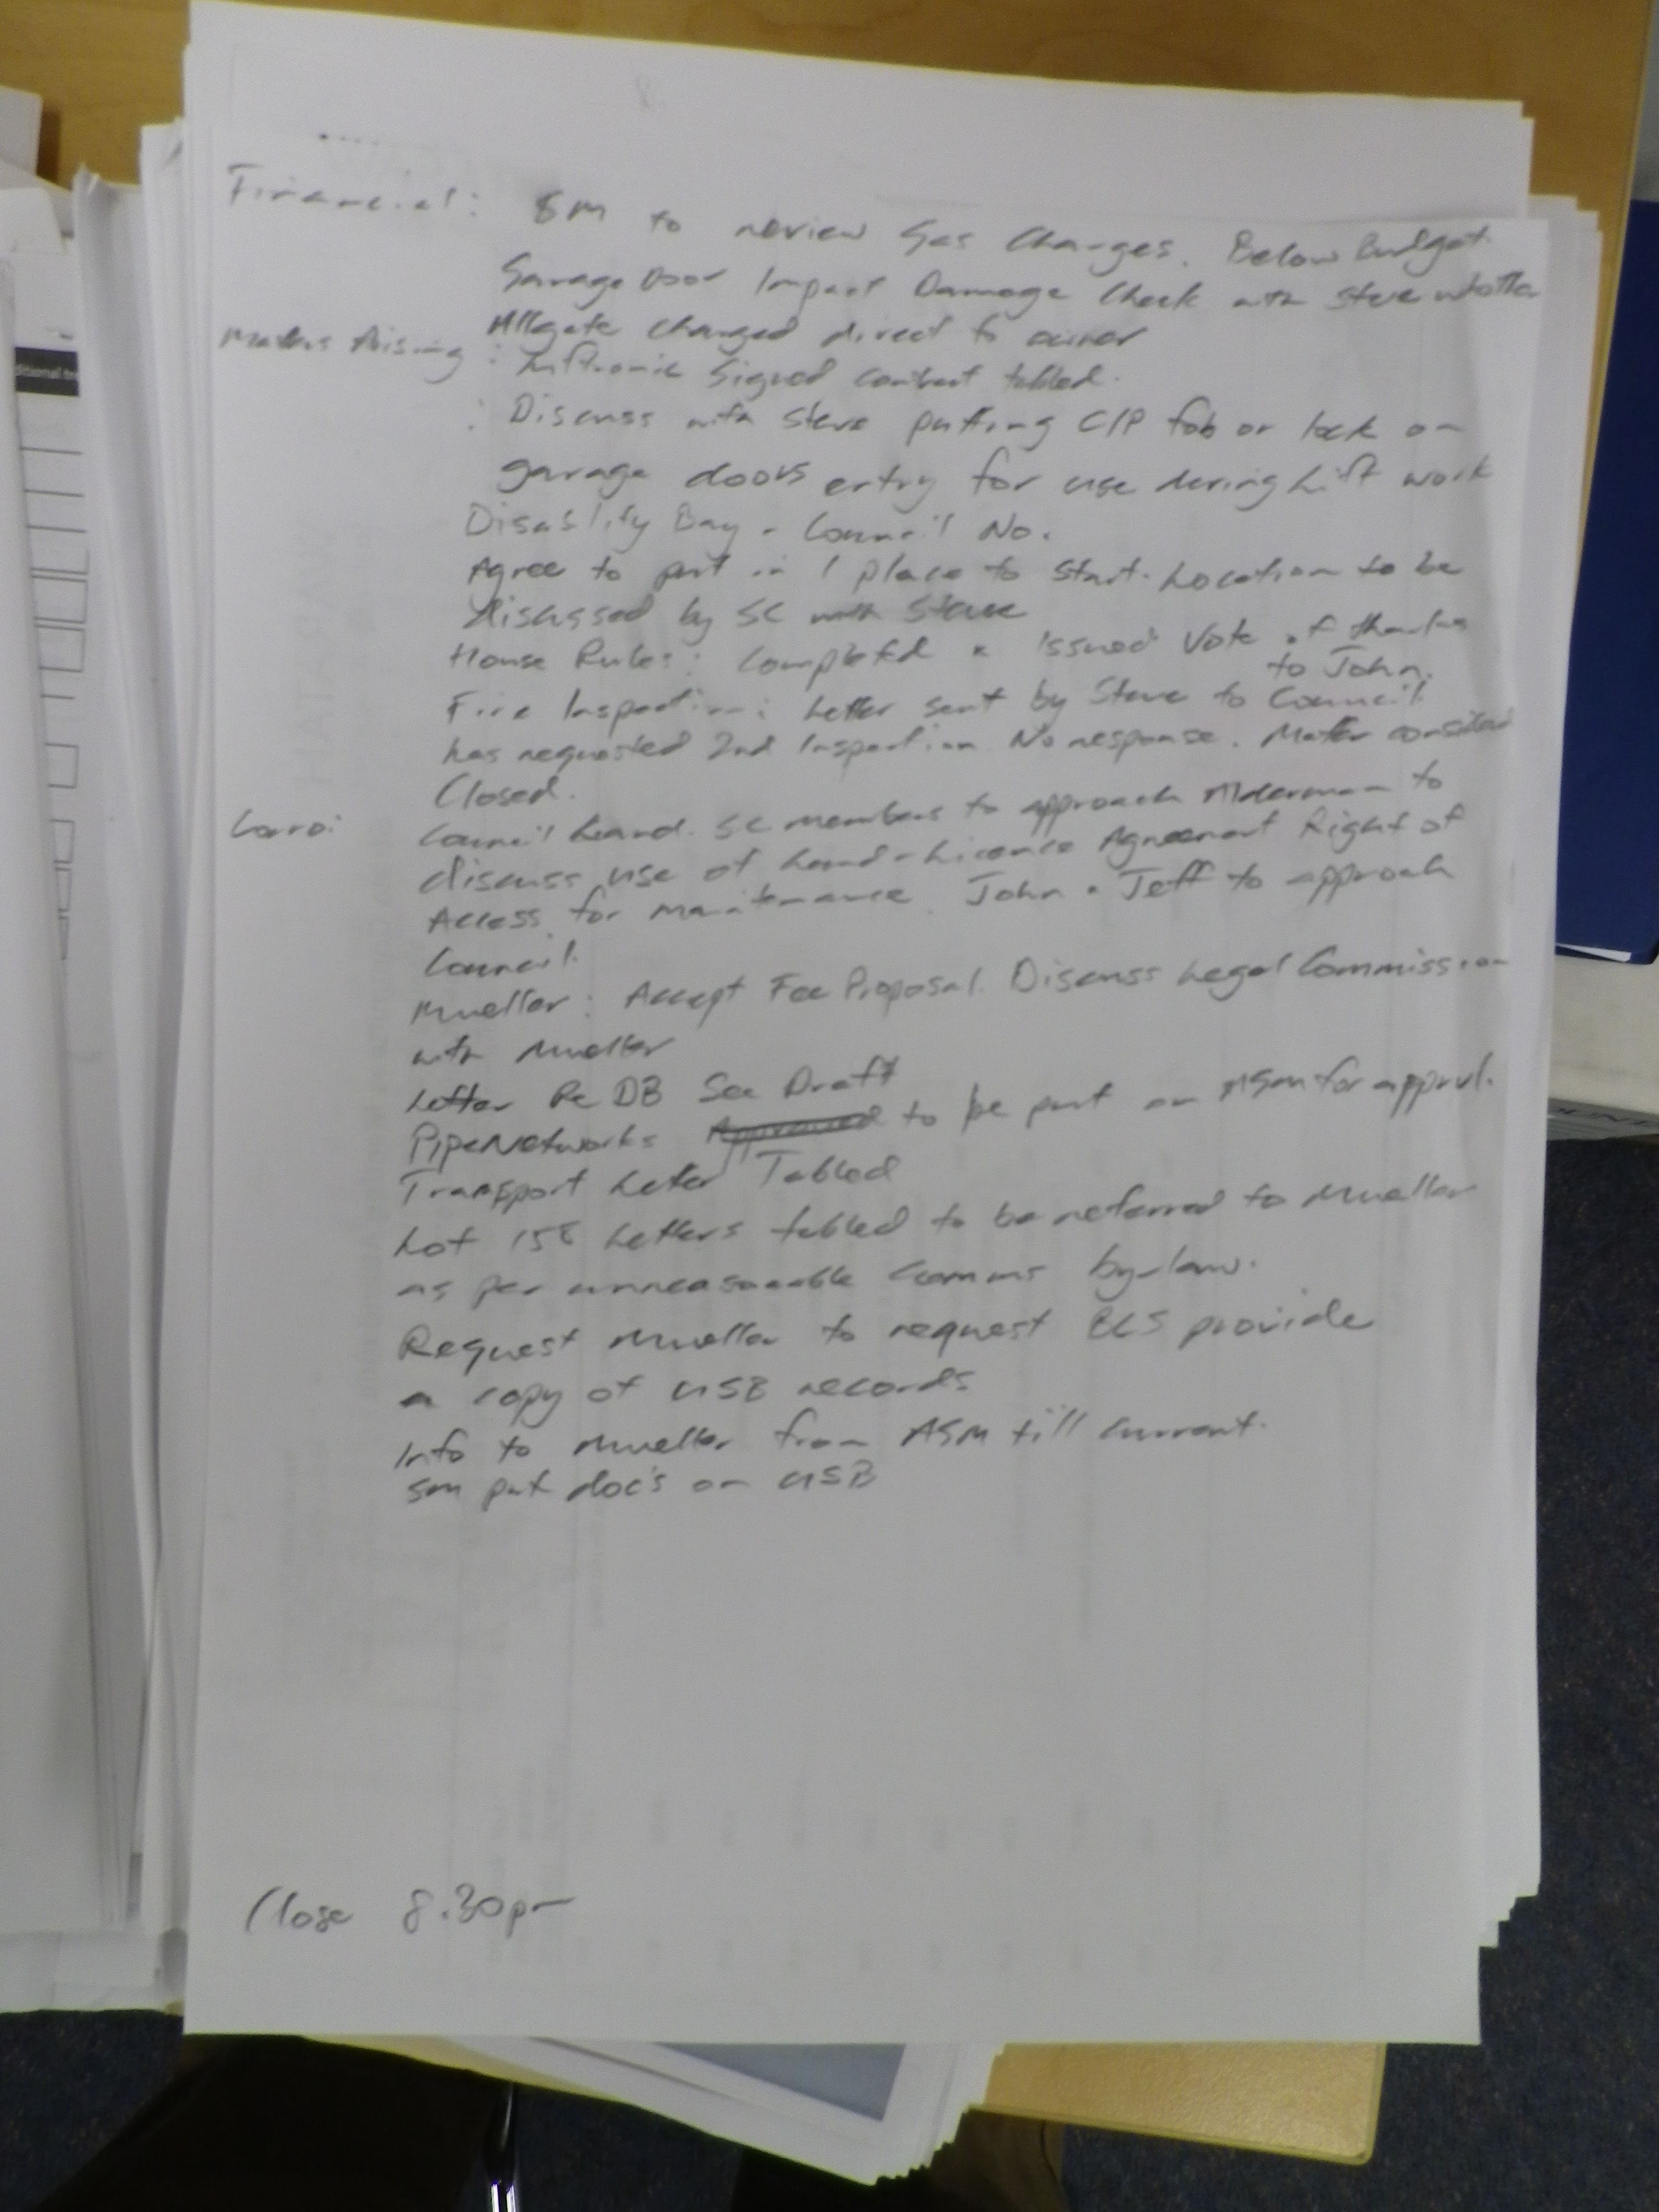 Financial: SM to review Gas Charges. Below Budget.
Garage Door Impact Damage Check with Steve whether
Allgate charged direct to owner
Matters Arising: Liftronic Signed contract tabled.
: Discuss with Steve putting C/P fob or lock on
garage doors entry for use during Lift work
Disability Bay - Council No.
Agree to put in 1 place to start. Location to be
discussed by SC with Steve
House Rules: Completed & Issued Vote of thanks
to John.
Fire Inspection: Letter sent by Steve to Council
has requested 2nd Inspection. No response. Matter considered
Closed.
Corro: Council Land. SC members to approach Alderman to
discuss use of Land - Licence Agreement Right of
Access for maintenance. John & Jeff to approach
Council.
Mueller: Accept Fee Proposal. Discuss Legal Commission
with Mueller
Letter Re DB See Draft
PipeNetworks Approved to be put on AGM for approvl.
Transport Letter Tabled
Lot 158 Letters tabled to be referred to Mueller
as per unreasonable Comms by-law.
Request Mueller to request BCS provide
a copy of USB records
Info to Mueller from AGM till current.
SM put doc's on USB
Close 8.30pm
ditional